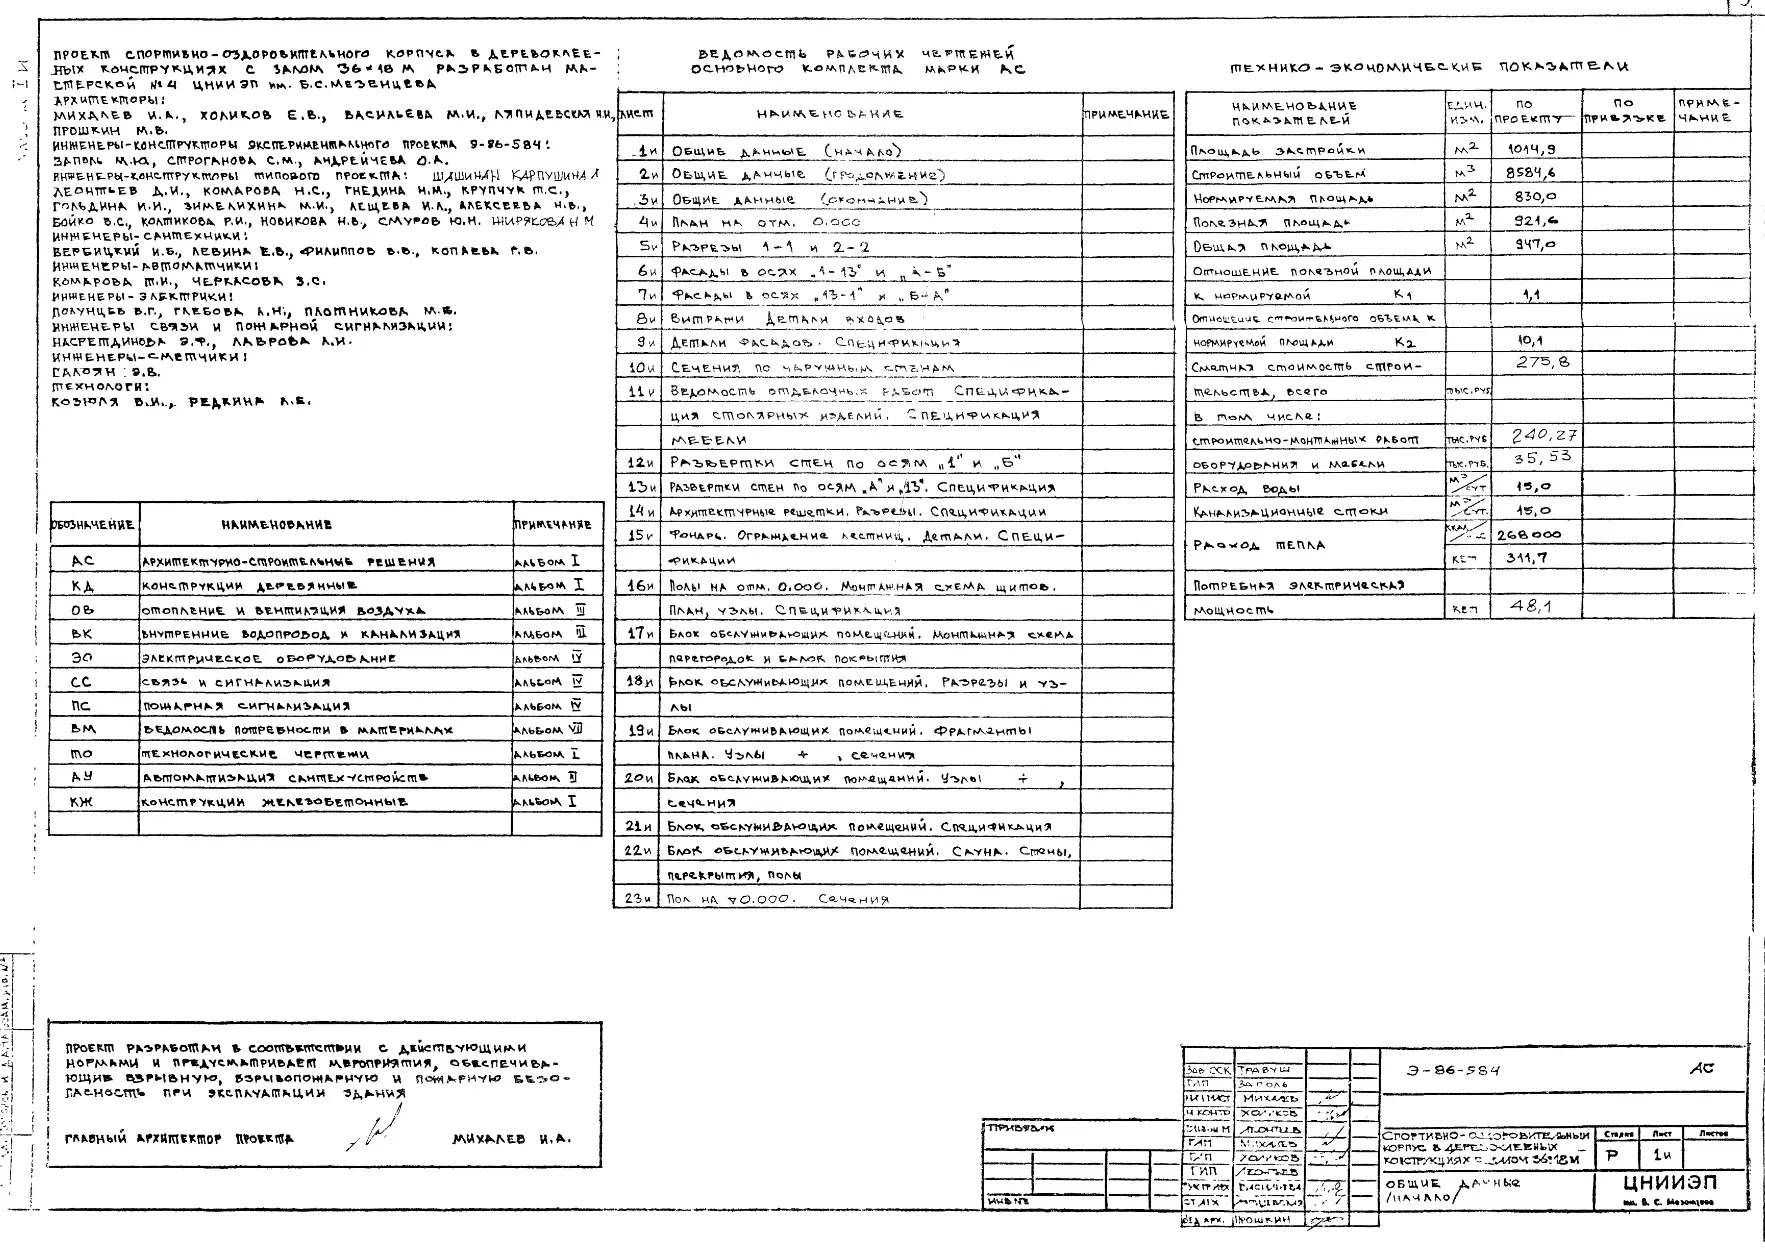 ПРОЕКТ СПОРТИВНО-ОЗДОРОВИТЕЛЬНОГО КОРПУСА В ДЕРЕВОКЛЕЕ-
НЫХ КОНСТРУКЦИЯХ С ЗАЛОМ 36×18 М РАЗРАБОТАН МА-
СТЕРСКОЙ №4 ЦНИИЭП им. Б.С.МЕЗЕНЦЕВА
АРХИТЕКТОРЫ:
МИХАЛЕВ И.А., ХОЛИКОВ Е.В., ВАСИЛЬЕВА М.И., ЛЯПИДЕВСКАЯ И.И,
ПРОШКИН М.В.
ИНЖЕНЕРЫ-КОНСТРУКТОРЫ ЭКСПЕРИМЕНТАЛЬНОГО ПРОЕКТА Э-86-584:
ЗАПОЛЬ М.Ю., СТРОГАНОВА С.М., АНДРЕЙЧЕВА О.А.
ИНЖЕНЕРЫ-КОНСТРУКТОРЫ ТИПОВОГО ПРОЕКТА: ШАШИНАН КАРПУШИНА Л
ЛЕОНТЬЕВ Д.И., КОМАРОВА Н.С., ГНЕДИНА Н.М., КРУПЧУК Т.С.,
ГОЛЬДИНА И.И., ЗИМЕЛИХИНА М.И., ЛЕЩЕВА И.Л., АЛЕКСЕЕВА Н.В.,
БОЙКО В.С., КОЛТИКОВА Р.И., НОВИКОВА Н.В., СМУРОВ Ю.Н. ШИРЯКОВА Н М
ИНЖЕНЕРЫ-САНТЕХНИКИ:
ВЕРБИЦКИЙ И.Б., ЛЕВИНА Е.В., ФИЛИППОВ В.В., КОПАЕВА Г.В.
ИНЖЕНЕРЫ-АВТОМАТЧИКИ:
КОМАРОВА Т.И., ЧЕРКАСОВА З.С.
ИНЖЕНЕРЫ-ЭЛЕКТРИКИ:
ПОЛУНЦЕВ В.Г., ГЛЕБОВА Л.Н., ПЛОТНИКОВА М.В.
ИНЖЕНЕРЫ СВЯЗИ И ПОЖАРНОЙ СИГНАЛИЗАЦИИ:
НАСРЕТДИНОВА Э.Ф., ЛАВРОВА Л.И.
ИНЖЕНЕРЫ-СМЕТЧИКИ:
ГАЛОЯН Э.В.
ТЕХНОЛОГИ:
КОЗЮЛЯ В.И., РЕДКИНА Л.Е.
ОБОЗНАЧЕНИЕ НАИМЕНОВАНИЕ ПРИМЕЧАНИЕ
АС АРХИТЕКТУРНО-СТРОИТЕЛЬНЫЕ РЕШЕНИЯ АЛЬБОМ I
КД КОНСТРУКЦИИ ДЕРЕВЯННЫЕ АЛЬБОМ I
ОВ ОТОПЛЕНИЕ И ВЕНТИЛЯЦИЯ ВОЗДУХА АЛЬБОМ III
ВК ВНУТРЕННИЕ ВОДОПРОВОД И КАНАЛИЗАЦИЯ АЛЬБОМ III
ЭО ЭЛЕКТРИЧЕСКОЕ ОБОРУДОВАНИЕ АЛЬБОМ IV
СС СВЯЗЬ И СИГНАЛИЗАЦИЯ АЛЬБОМ IV
ПС ПОЖАРНАЯ СИГНАЛИЗАЦИЯ АЛЬБОМ IV
ВМ ВЕДОМОСТЬ ПОТРЕБНОСТИ В МАТЕРИАЛАХ АЛЬБОМ VII
ТО ТЕХНОЛОГИЧЕСКИЕ ЧЕРТЕЖИ АЛЬБОМ I
АУ АВТОМАТИЗАЦИЯ САНТЕХУСТРОЙСТВ АЛЬБОМ
КЖ КОНСТРУКЦИИ ЖЕЛЕЗОБЕТОННЫЕ АЛЬБОМ I
ПРОЕКТ РАЗРАБОТАН В СООТВЕТСТВИИ С ДЕЙСТВУЮЩИМИ
НОРМАМИ И ПРЕДУСМАТРИВАЕТ МЕРОПРИЯТИЯ, ОБЕСПЕЧИВА-
ЮЩИЕ ВЗРЫВНУЮ, ВЗРЫВОПОЖАРНУЮ И ПОЖАРНУЮ БЕЗО-
ПАСНОСТЬ ПРИ ЭКСПЛУАТАЦИИ ЗДАНИЯ
ГЛАВНЫЙ АРХИТЕКТОР ПРОЕКТА МИХАЛЕВ И.А.
ВЕДОМОСТЬ РАБОЧИХ ЧЕРТЕЖЕЙ
ОСНОВНОГО КОМПЛЕКТА МАРКИ АС
ЛИСТ НАИМЕНОВАНИЕ ПРИМЕЧАНИЕ
1и ОБЩИЕ ДАННЫЕ (НАЧАЛО)
2и ОБЩИЕ ДАННЫЕ (ПРОДОЛЖЕНИЕ)
3и ОБЩИЕ ДАННЫЕ (ОКОНЧАНИЕ)
4и ПЛАН НА ОТМ. 0.000
5и РАЗРЕЗЫ 1-1 И 2-2
6и ФАСАДЫ В ОСЯХ „1-13" И „А-Б"
7и ФАСАДЫ В ОСЯХ „13-1" И „Б-А"
8и ВИТРАЖИ ДЕТАЛИ ВХОДОВ
9и ДЕТАЛИ ФАСАДОВ. СПЕЦИФИКАЦИЯ
10и СЕЧЕНИЯ ПО НАРУЖНЫМ СТЕНАМ
11и ВЕДОМОСТЬ ОТДЕЛОЧНЫХ РАБОТ СПЕЦИФИКА-
ЦИЯ СТОЛЯРНЫХ ИЗДЕЛИЙ. СПЕЦИФИКАЦИЯ
МЕБЕЛИ
12и РАЗВЕРТКИ СТЕН ПО ОСЯМ „1" И „Б"
13и РАЗВЕРТКИ СТЕН ПО ОСЯМ „А" И „13". СПЕЦИФИКАЦИЯ
14и АРХИТЕКТУРНЫЕ РЕШЕТКИ. РАЗРЕЗЫ. СПЕЦИФИКАЦИИ
15и ФОНАРЬ. ОГРАЖДЕНИЕ ЛЕСТНИЦ. ДЕТАЛИ. СПЕЦИ-
ФИКАЦИИ
16и ПОЛЫ НА ОТМ. 0.000. МОНТАЖНАЯ СХЕМА ЩИТОВ.
ПЛАН, УЗЛЫ. СПЕЦИФИКАЦИЯ
17и БЛОК ОБСЛУЖИВАЮЩИХ ПОМЕЩЕНИЙ. МОНТАЖНАЯ СХЕМА
ПЕРЕГОРОДОК И БАЛОК ПОКРЫТИЯ
18и БЛОК ОБСЛУЖИВАЮЩИХ ПОМЕЩЕНИЙ. РАЗРЕЗЫ И УЗ-
ЛЫ
19и БЛОК ОБСЛУЖИВАЮЩИХ ПОМЕЩЕНИЙ. ФРАГМЕНТЫ
ПЛАНА. УЗЛЫ ÷ , СЕЧЕНИЯ
20и БЛОК ОБСЛУЖИВАЮЩИХ ПОМЕЩЕНИЙ. УЗЛЫ ÷ ,
СЕЧЕНИЯ
21и БЛОК ОБСЛУЖИВАЮЩИХ ПОМЕЩЕНИЙ. СПЕЦИФИКАЦИЯ
22и БЛОК ОБСЛУЖИВАЮЩИХ ПОМЕЩЕНИЙ. САУНА. СТЕНЫ,
ПЕРЕКРЫТИЯ, ПОЛЫ
23и ПОЛ НА ▽0.000. СЕЧЕНИЯ
ТЕХНИКО-ЭКОНОМИЧЕСКИЕ ПОКАЗАТЕЛИ
НАИМЕНОВАНИЕ ПОКАЗАТЕЛЕЙ ЕДИН. ИЗМ. ПО ПРОЕКТУ ПО ПРИВЯЗКЕ ПРИМЕ-ЧАНИЕ
ПЛОЩАДЬ ЗАСТРОЙКИ М2 1014,9
СТРОИТЕЛЬНЫЙ ОБЪЕМ М3 8584,6
НОРМИРУЕМАЯ ПЛОЩАДЬ М2 830,0
ПОЛЕЗНАЯ ПЛОЩАДЬ М2 921,6
ОБЩАЯ ПЛОЩАДЬ М2 947,0
ОТНОШЕНИЕ ПОЛЕЗНОЙ ПЛОЩАДИ
К НОРМИРУЕМОЙ К1 1,1
ОТНОШЕНИЕ СТРОИТЕЛЬНОГО ОБЪЕМА К
НОРМИРУЕМОЙ ПЛОЩАДИ К2 10,1
СМЕТНАЯ СТОИМОСТЬ СТРОИ- 275,8
ТЕЛЬСТВА, ВСЕГО ТЫС.РУБ
В ТОМ ЧИСЛЕ:
СТРОИТЕЛЬНО-МОНТАЖНЫХ РАБОТ ТЫС.РУБ 240,27
ОБОРУДОВАНИЯ И МЕБЕЛИ ТЫС.РУБ. 35,53
РАСХОД ВОДЫ М3/СУТ 15,0
КАНАЛИЗАЦИОННЫЕ СТОКИ М3/СУТ. 15,0
РАСХОД ТЕПЛА ККАЛ/Ч 268000
КВТ 311,7
ПОТРЕБНАЯ ЭЛЕКТРИЧЕСКАЯ
МОЩНОСТЬ КВТ 48,1
ПРИВЯЗАН
ИНВ №
ЗАВ ОСК ТРАВУШ
ГАП ЗАПОЛЬ
МИХАЛЕВ
Н КОНТР ХОЛИКОВ
ЛЕОНТЬЕВ
ГАП МИХАЛЕВ
ГАП ХОЛИКОВ
ГИП ЛЕОНТЬЕВ
ВЕД АРХ. ПРОШКИН
Э-86-584 АС
СПОРТИВНО-ОЗДОРОВИТЕЛЬНЫЙ
КОРПУС В ДЕРЕВОКЛЕЕНЫХ
КОНСТРУКЦИЯХ С ЗАЛОМ 36×18М
Стадия Лист Листов
Р 1и
ОБЩИЕ ДАННЫЕ
/НАЧАЛО/
ЦНИИЭП
им. Б. С. Мезенцева